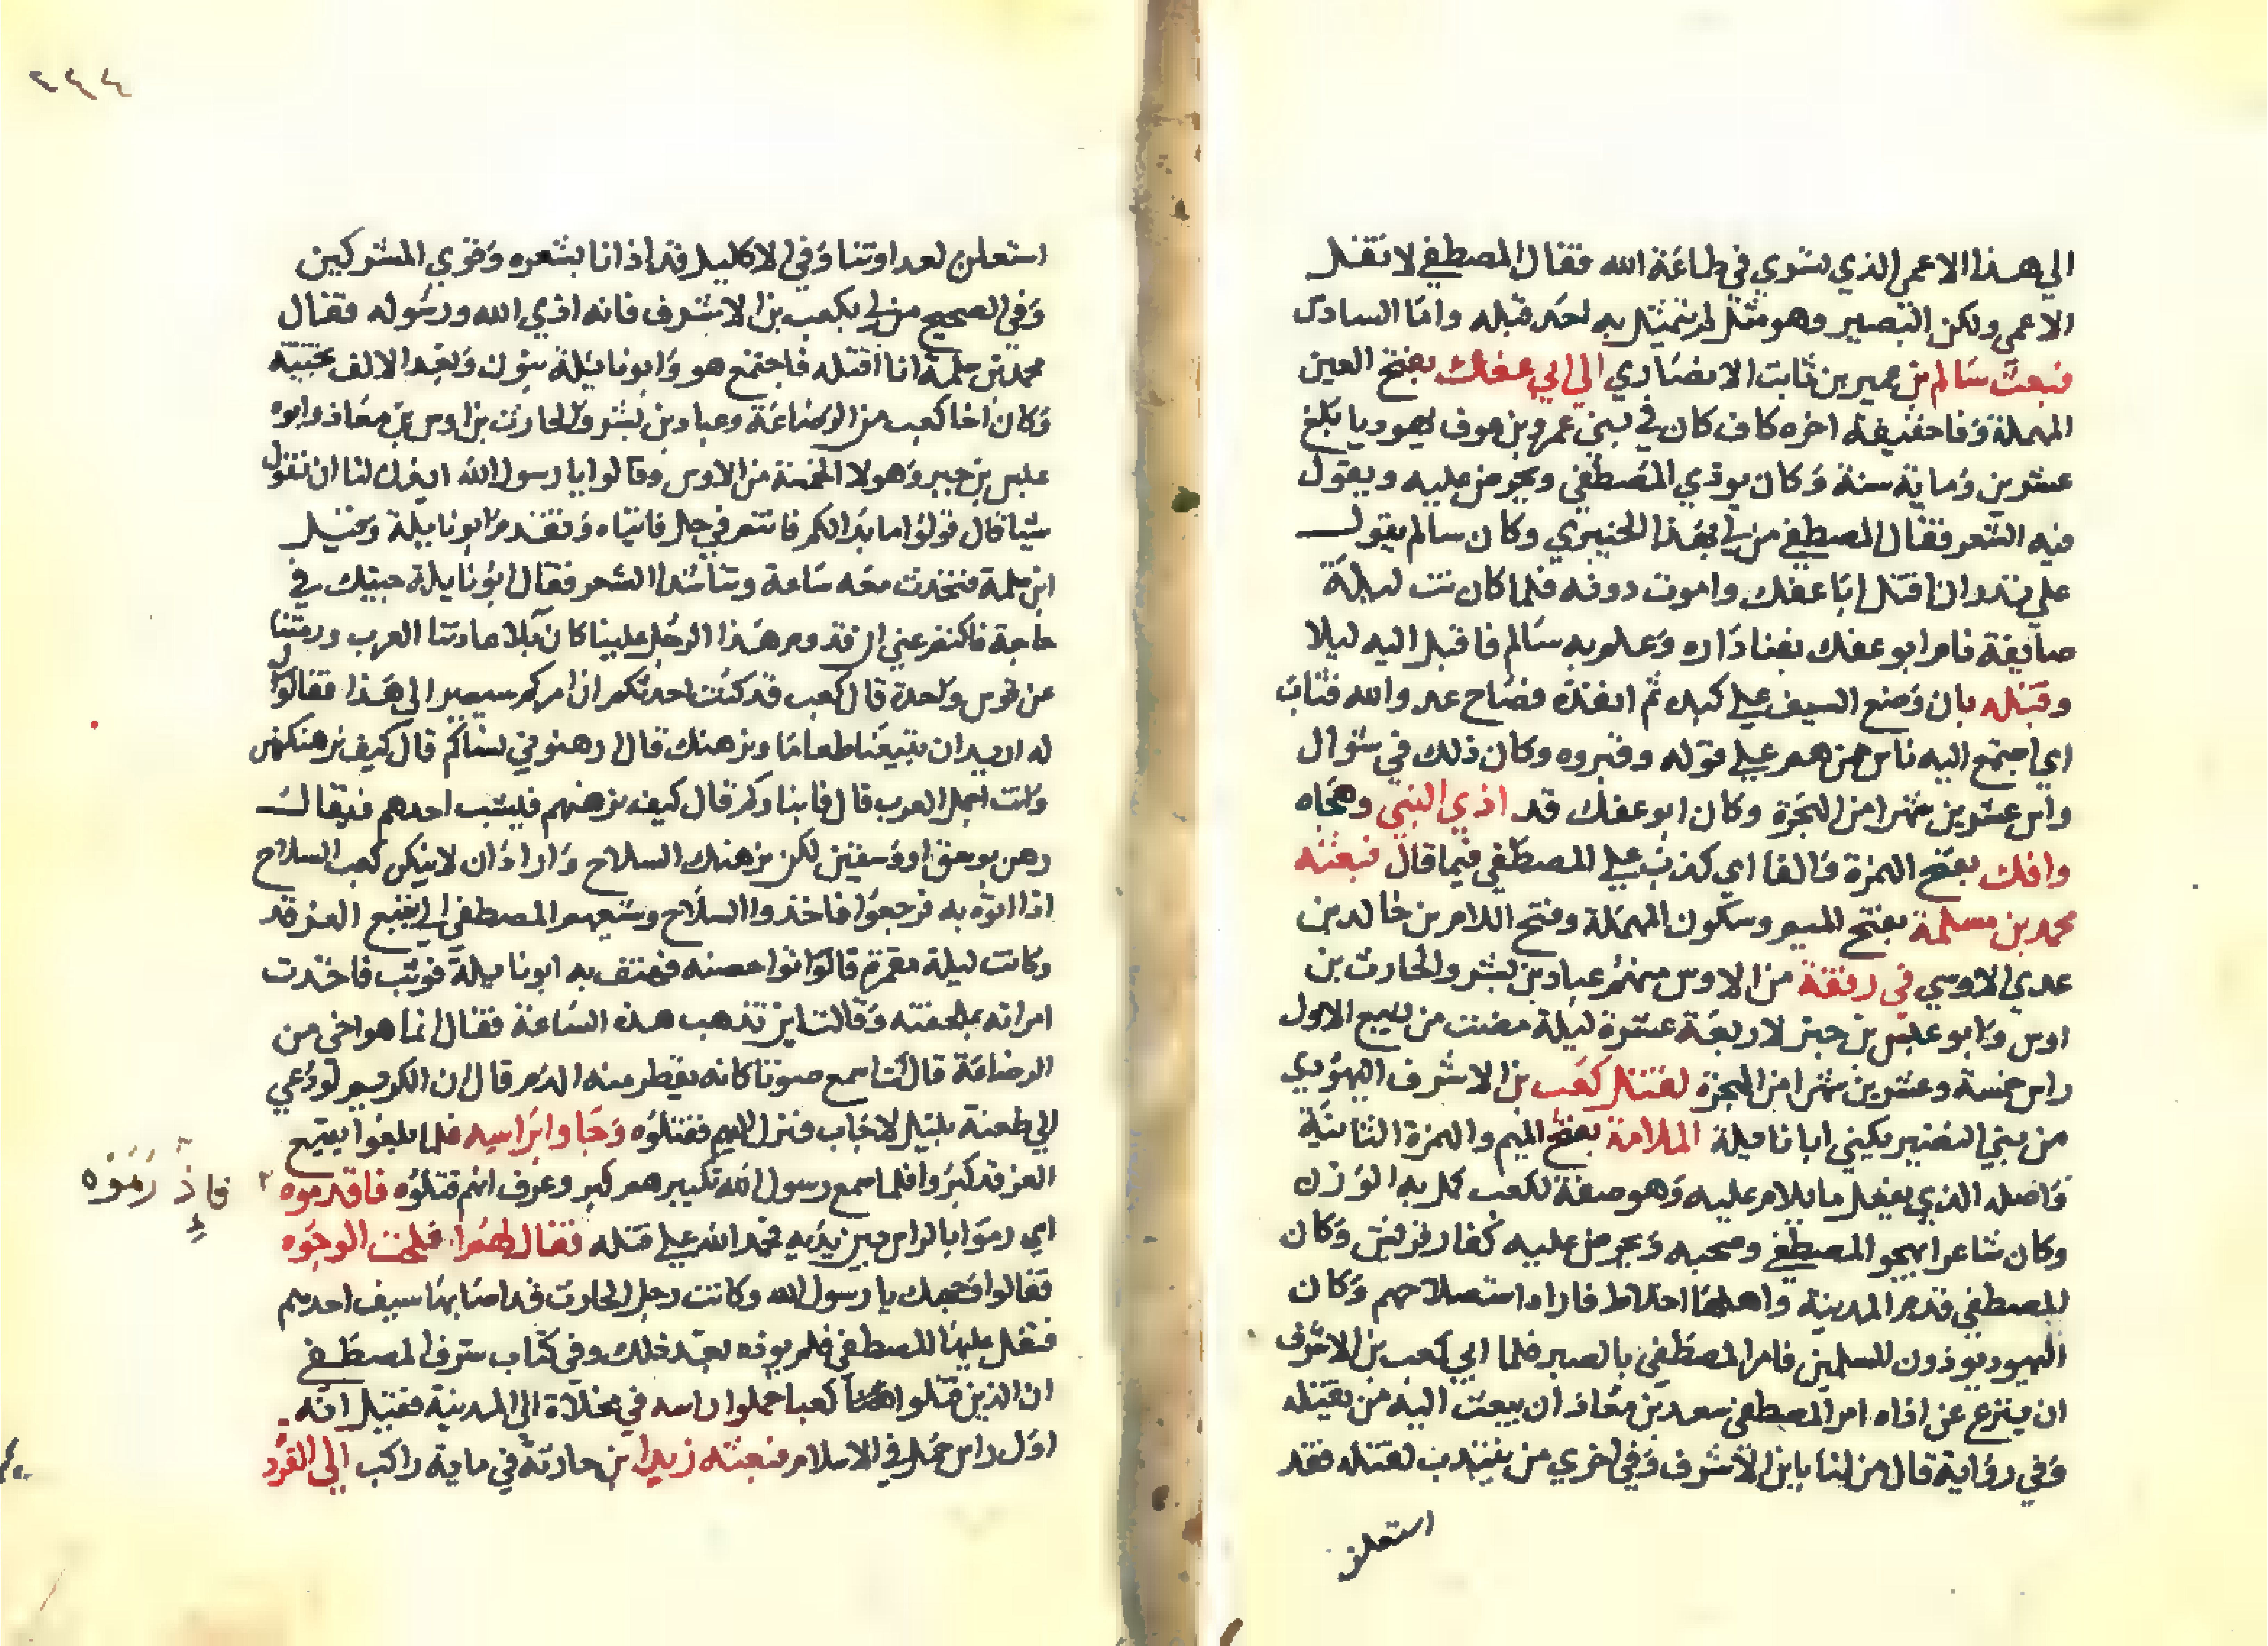 الي هذا الاعمي الذي يسري في طاعة الله فقال المصطفي لا تقل
الاعمي ولكن البصير وهو مثل لم يتمثل به احد قبله واما السادس
فبعث سالم بن عمير بن ثابت الانصاري الي ابي عفك بفتح العين
المهملة وفا خفيفة اخره كاف كان في بني عمرو بن عوف يهوديا بلغ
عشرين وماية سنة وكان يوذي المصطفي ويحرض عليه ويقول
فيه الشعر فقال المصطفي من لي بهذا الخبيث وكان سالم يقول
علي نذر ان اقتل ابا عفك واموت دونه فلما كان ذت ليلة
صايفة نام ابو عفك بفنا داره وعلم به سالم فاقبل اليه ليلا
وقتله بان وضع السيف علي كبده ثم انفذه فصاح عدو الله فثاب
اي اجتمع اليه ناس من هم علي قوله وقبروه وكان ذلك في شوال
راس عشرين شهرا من الهجرة وكان ابو عفك قد اذي النبي وهجاه
وافك بفتح الهمزة والفا اي كذب علي المصطفي فيما قال فبعثه
محمد بن مسلمة بفتح الميم وسكون المهملة وفتح اللام بن خالد بن
عدي الاوسي في رفقة من الاوس منهم عباد بن بشر والحارث بن
اوس وابو عبس بن جبر لاربعة عشرة ليلة مضت من ربيع الاول
راس خمسة وعشرين شهرا من الهجرة لقتل كعب بن الاشرف اليهودي
من بني النضير يكني ابا نايلة الملامة بفتح الميم والهمزة الثانية
واصله الذي يفعل ما يلام عليه وهو صفة لكعب كمل به الوزن
وكان شاعرا يهجو المصطفي وصحبه ويحرض عليه كفار قريش وكان
المصطفي قدم المدينة واهلها اخلاط فاراد استصلاحهم وكان
اليهود يوذون المسلمين فامر المصطفي بالصبر فلما ابي كعب بن الاشرف
ان ينزع عن اذاه امر المصطفي سعد بن معاذ ان يبعث اليه من يقتله
وفي رواية قال من لنا بابن الاشرف وفي اخري من ينتدب لقتله فقد
استعلن
٢٣٤
استعلن لعداوتنا وفي الاكليل قد اذانا بشعره وقوي المشركين
وفي الصحيح من لي بكعب بن الاشرف فانه اذي الله ورسوله فقال
محمد بن مسلمة انا اقتله فاجتمع هو وابو نايلة بنون وبعد الالف تحتية
وكان اخا كعب من الرضاعة وعباد بن بشر والحارث بن اوس بن معاذ وابو
عبس بن جبر وهولا الخمسة من الاوس وقالوا يا رسول الله ايذن لنا ان نقول
شيا قال قولوا ما بدا لكم فانتم في حل فاتياه وتقدم ابو نايلة وقيل
ابن مسلمة فتحدث معه ساعة وتناشدا الشعر فقال ابو نايلة جيتك في
حاجة فاكتم عني ان قدوم هذا الرجل علينا كان بلا عادتنا العرب ورمتنا
عن قوس واحدة قال كعب قد كنت احدثكم ان امركم سيصير الي هذا فقالوا
له اريد ان تبيعنا طعاما ونرهنك قال ارهنوني نساكم قال كيف نرهنكهن
وانت اجمل العرب قال فابناوكم قال كيف نرهنهم فيسب احدهم فيقال
رهن بوسق او وسقين لكن نرهنك السلاح وارادان لا ينكر كعب السلاح
اذا اتوه به فرجعوا فاخذوا السلاح وشيعهم المصطفي الي بقيع الغرقد
وكانت ليلة مقمرة قالوا اتوا حصنه فهتف به ابو نايلة فوثب فاخذت
امراته بملحفته وقالت اين تذهب هذه الساعة فقال انما هو اخي من
الرضاعة قالت اسمع صوتا كانه يقطر منه الدم قال ان الكريم لو دعي
الي طعنة بليل لاجاب فنزل اليهم فقتلوه وجاوا براسه فلما بلغوا بقيع
الغرقد كبروا فلما سمع رسول الله تكبيرهم كبر وعرف انهم قتلوه فاقدموه
فاذ رموه
اي رموا بالراس بين يديه فحمد الله علي قتله فقال لهم افلحت الوجوه
فقالوا وجهك يا رسول الله وكانت رجل الحارث قد اصابها سيف احدهم
فتفل عليها المصطفي فلم يوذه بعد ذلك وفي كتاب شرف المصطفي
ان الذين قتلوا كعبا حملوا راسه في مخلاة الي المدينة فقيل انه
اول راس حمل في الاسلام فبعثه زيدا بن حارثة في ماية راكب الي القرد